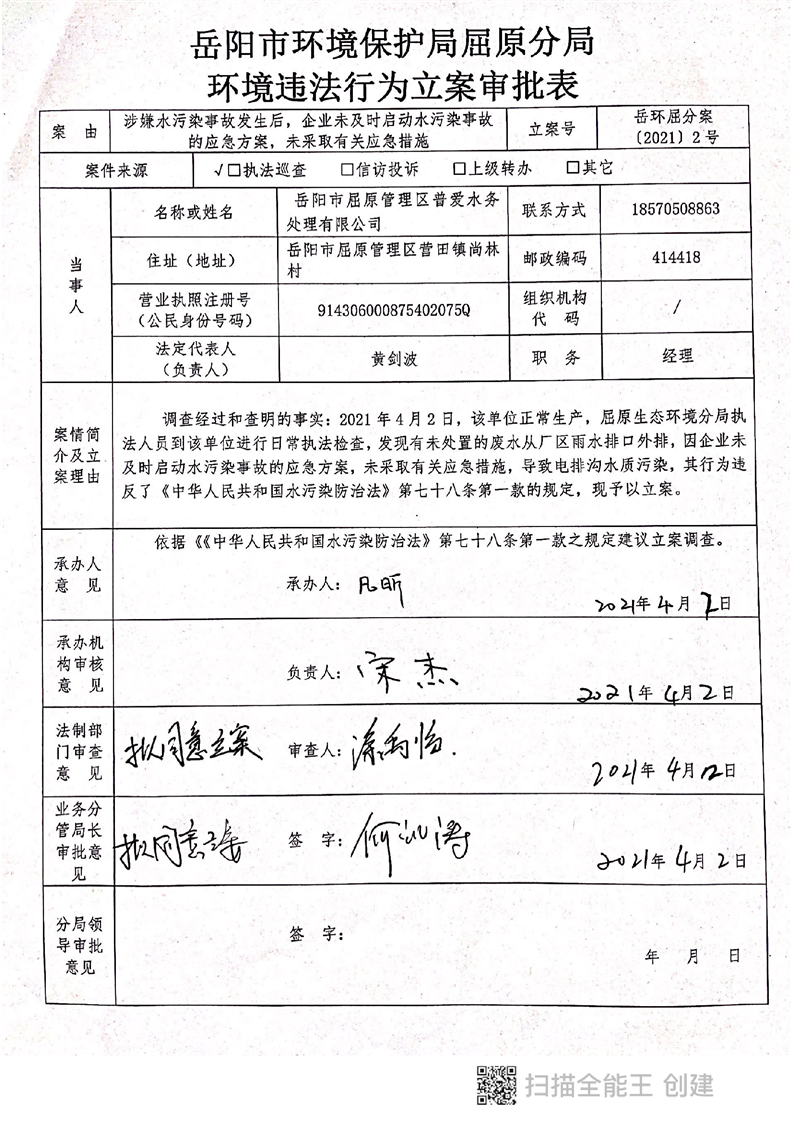 岳阳市环境保护局屈原分局
环境违法行为立案审批表
案 由
涉嫌水污染事故发生后，企业未及时启动水污染事故
的应急方案，未采取有关应急措施
立案号
岳环屈分案
〔2021〕2号
案件来源
√□执法巡查 □信访投诉 □上级转办 □其它
当
事
人
名称或姓名
岳阳市屈原管理区普爱水务
处理有限公司
联系方式
18570508863
住址（地址）
岳阳市屈原管理区营田镇尚林
村
邮政编码
414418
营业执照注册号
（公民身份号码）
914306000875402075Q
组织机构
代 码
/
法定代表人
（负责人）
黄剑波
职 务
经理
案情简
介及立
案理由
调查经过和查明的事实：2021年4月2日，该单位正常生产，屈原生态环境分局执
法人员到该单位进行日常执法检查，发现有未处置的废水从厂区雨水排口外排，因企业未
及时启动水污染事故的应急方案，未采取有关应急措施，导致电排沟水质污染，其行为违
反了《中华人民共和国水污染防治法》第七十八条第一款的规定，现予以立案。
承办人
意 见
依据《《中华人民共和国水污染防治法》第七十八条第一款之规定建议立案调查。
承办人：
2021年4月2日
承办机
构审核
意 见
负责人：宋杰
2021年4月2日
法制部
门审查
意 见
拟同意立案
审查人：
2021年4月 日
业务分
管局长
审批意
见
拟同意立案
签 字：
2021年4月2日
分局领
导审批
意见
签 字：
年 月 日
扫描全能王 创建